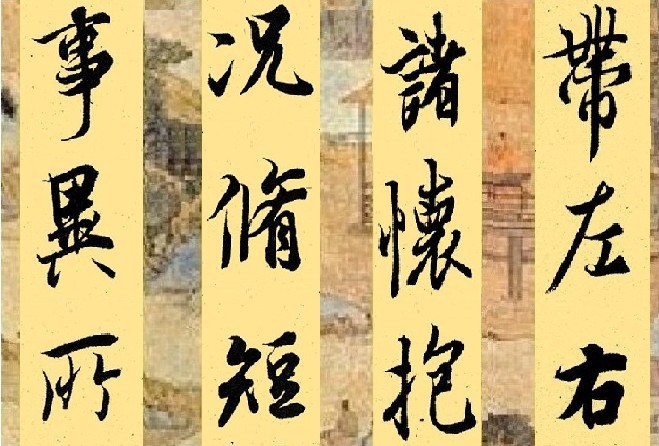 帶左右
諸懷抱
况脩短
事異所